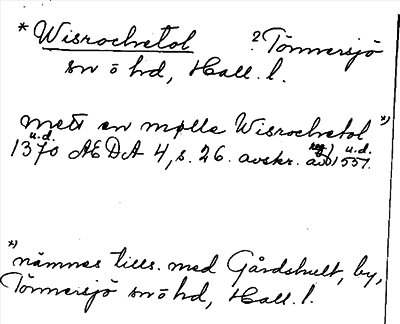 * Wisrochetol ? Tönnersjö
sn ö hd, Hall. l.
mett en mølle Wisrochetol *)
u.d. reg) u.d.
1370 AEDA 4, s. 26. avskr. av 1551.
*) nämnes tills. med Gårdshult, by,
Tönnersjö sn ö hd, Hall. l.